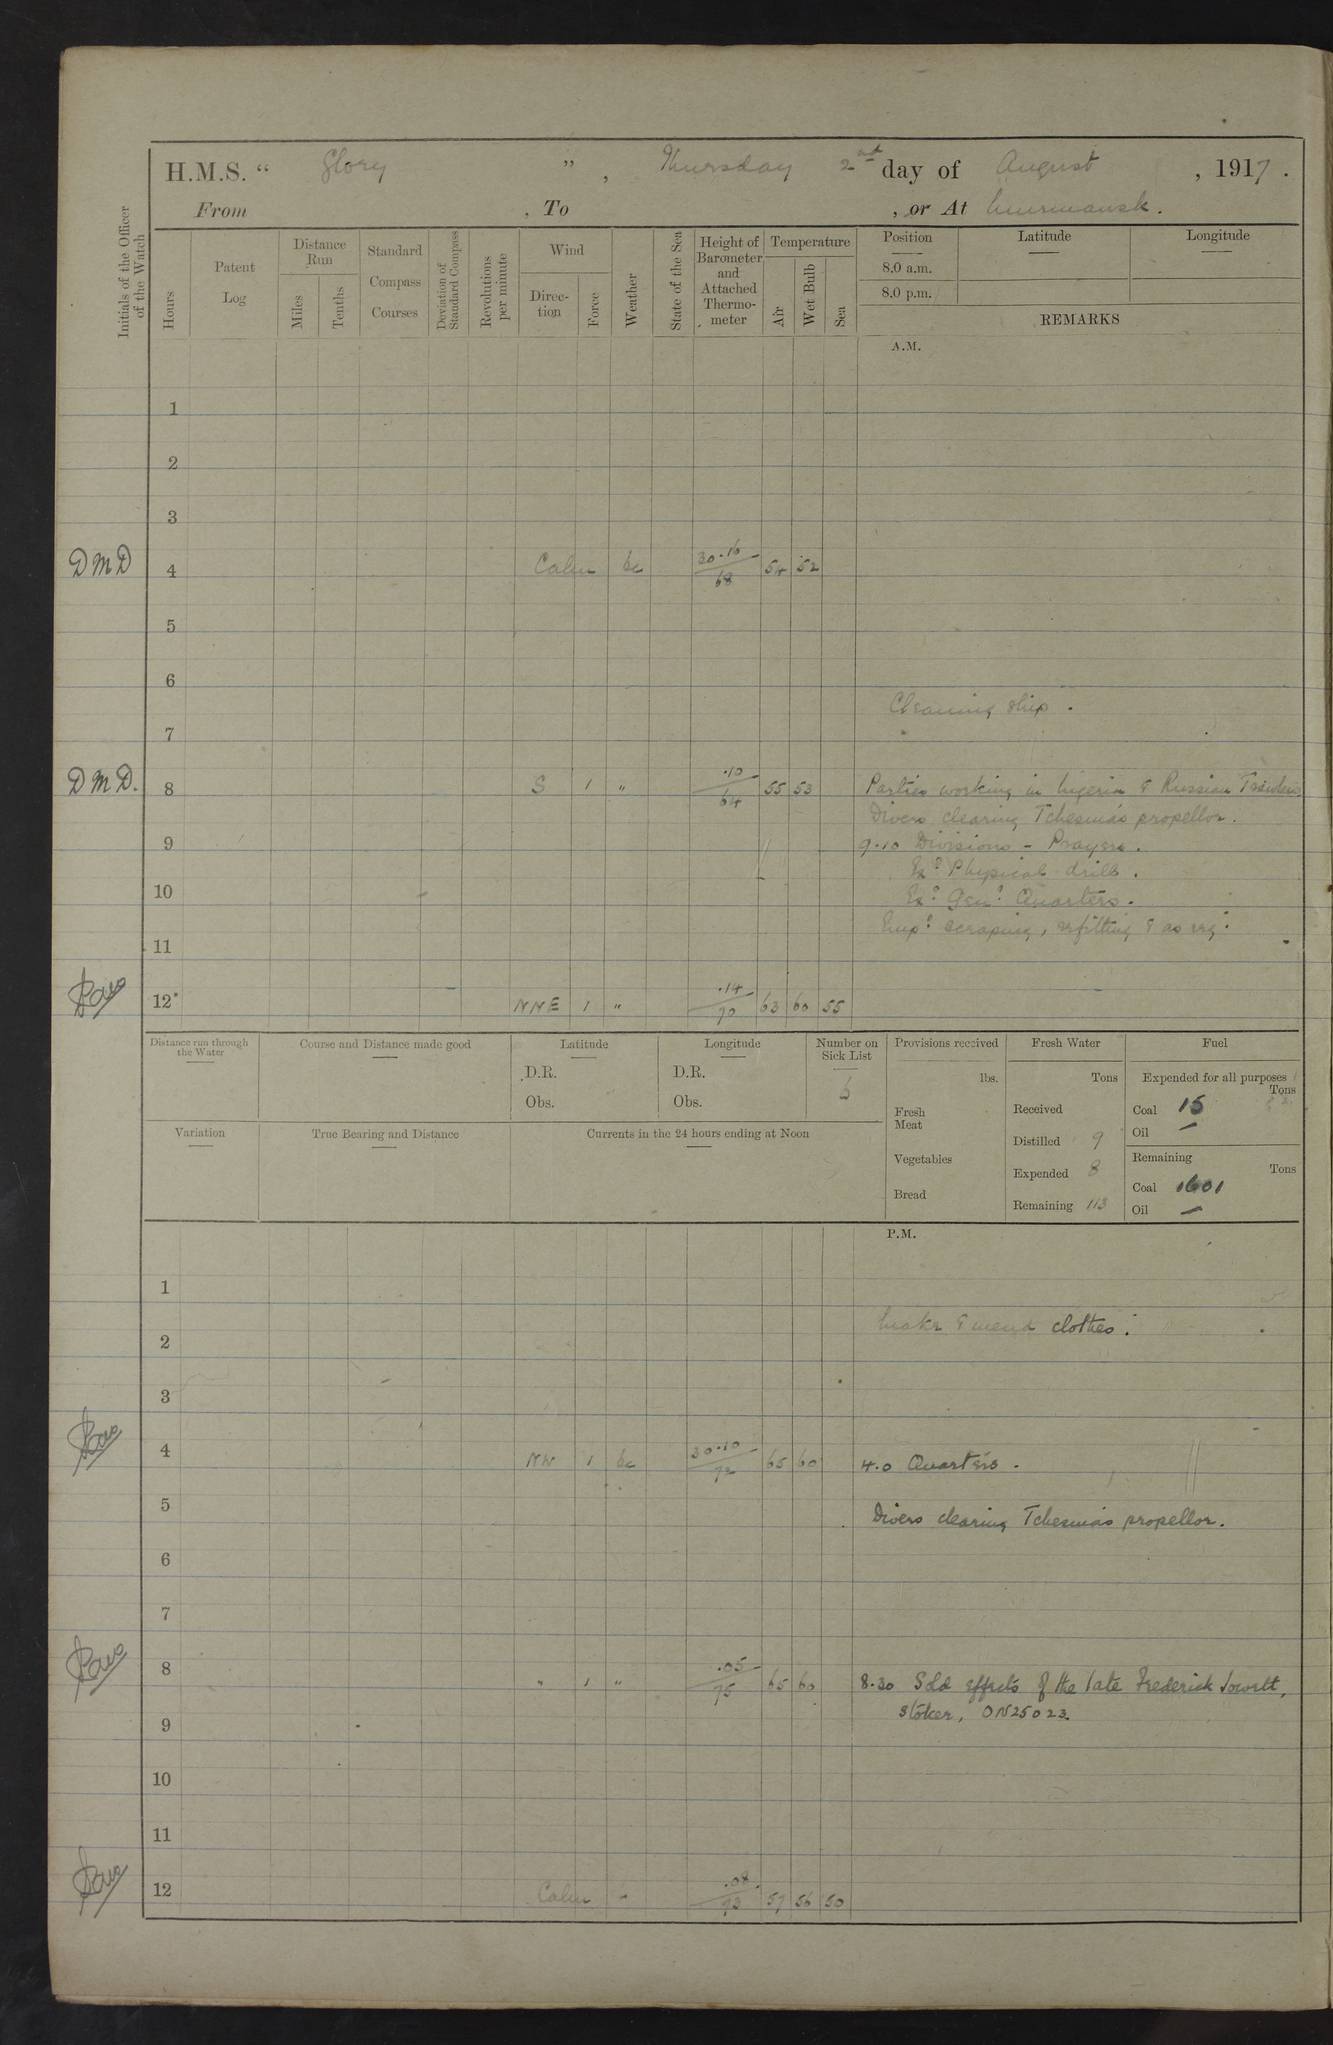 H.M.S. " Glory ", Thursday 2nd day of August, 1917.
From , To , or At Murmansk.
Initials of the Officer of the Watch
Hours
Patent Log
Distance Run
Miles
Tenths
Standard Compass Courses
Deviation of Standard Compass
Revolutions per minute
Wind
Direction
Force
Weather
State of the Sea
Height of Barometer and Attached Thermometer
Temperature
Air
Wet Bulb
Sea
Position
Latitude
Longitude
8.0 a.m.
8.0 p.m.
REMARKS
A.M.
1
2
3
DMD 4 Calm bc 30.16/68 54 52
5
6
Cleaning ship.
7
DMD. 8 S 1 " .10/64 55 53 Parties working in Nigeria & Russian
Divers clearing Tchesma's propellor.
9 9.10 Divisions - Prayers.
Exd Physical drill.
10 Exd Genl Quarters.
Empd scraping, refitting & as req.
11
12 NNE 1 " .14/70 63 60 55
Distance run through the Water
Course and Distance made good
Latitude
D.R.
Obs.
Longitude
D.R.
Obs.
Number on Sick List
6
Provisions received
lbs.
Fresh Meat
Vegetables
Bread
Fresh Water
Tons
Received
Distilled 9
Expended 8
Remaining 113
Fuel
Expended for all purposes
Tons
Coal 15
Oil —
Remaining
Tons
Coal 1601
Oil —
Variation
True Bearing and Distance
Currents in the 24 hours ending at Noon
P.M.
1
Make & mend clothes.
2
3
4 NW 1 bc 30.10/72 65 60 4.0 Quarters.
5 Divers clearing Tchesma's propellor.
6
7
8 " 1 " .05/75 65 60 8.30 Sold effects of the late Frederick
Stoker, ON25023.
9
10
11
12 Calm " .08/73 57 56 50